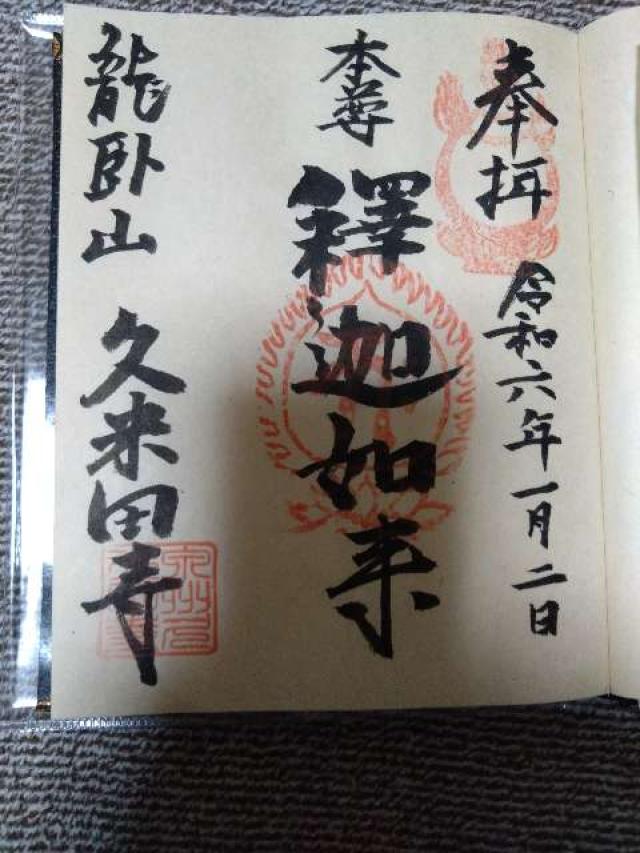 奉拝
令和六年一月二日
本尊
釋迦如来
龍臥山
久米田寺